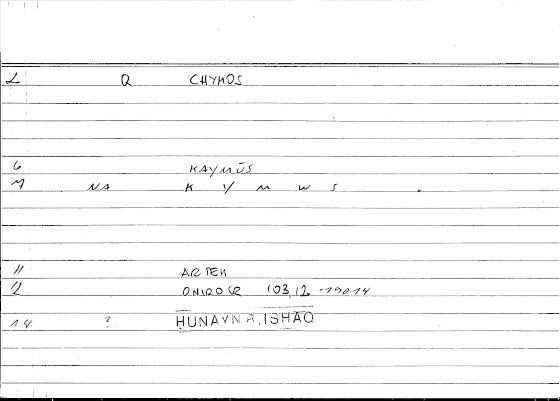 2 Q CHYMOS
6 KAYMŪS
7 NA K Y M W S .
11 ARTEM
12 ONIROCR 103,12 - 190,14
14 ? HUNAYN B. ISHAQ